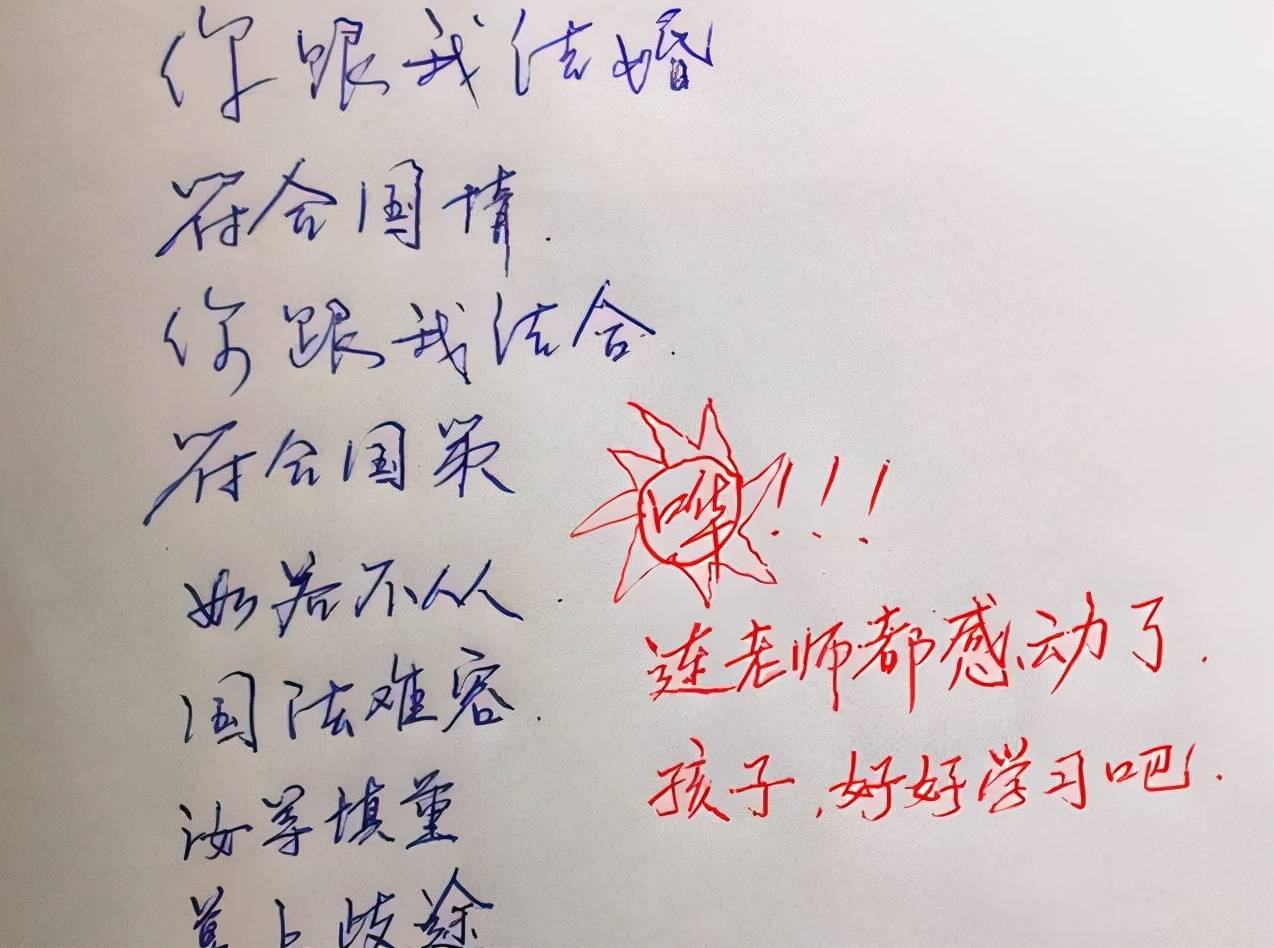 你跟我结婚
符合国情.
你跟我结合.
符合国策
如若不从
国法难容.
汝等填重
莫上歧途
哗!!!
连老师都感动了.
孩子,好好学习吧.